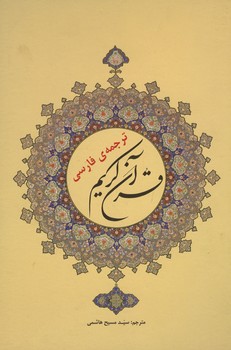 ترجمه‌ی فارسی
قرآن کریم
مترجم: سید مسیح هاشمی